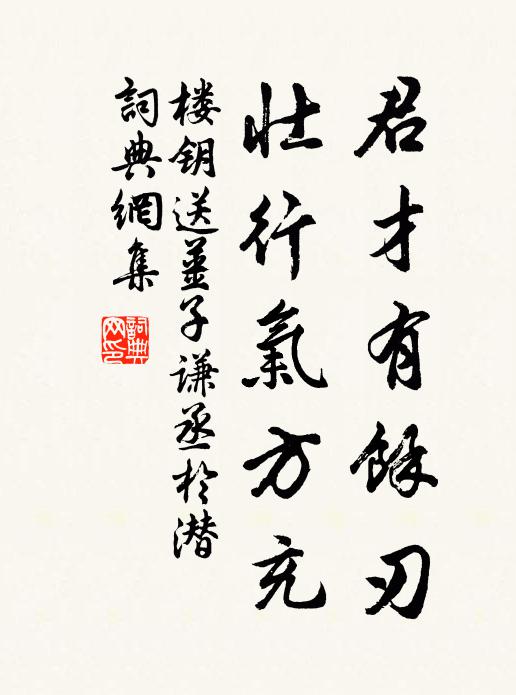 君才有餘刃
壮行氣方充
楼钥送薑子谦丞於潜
詞典網集
詞典
网印